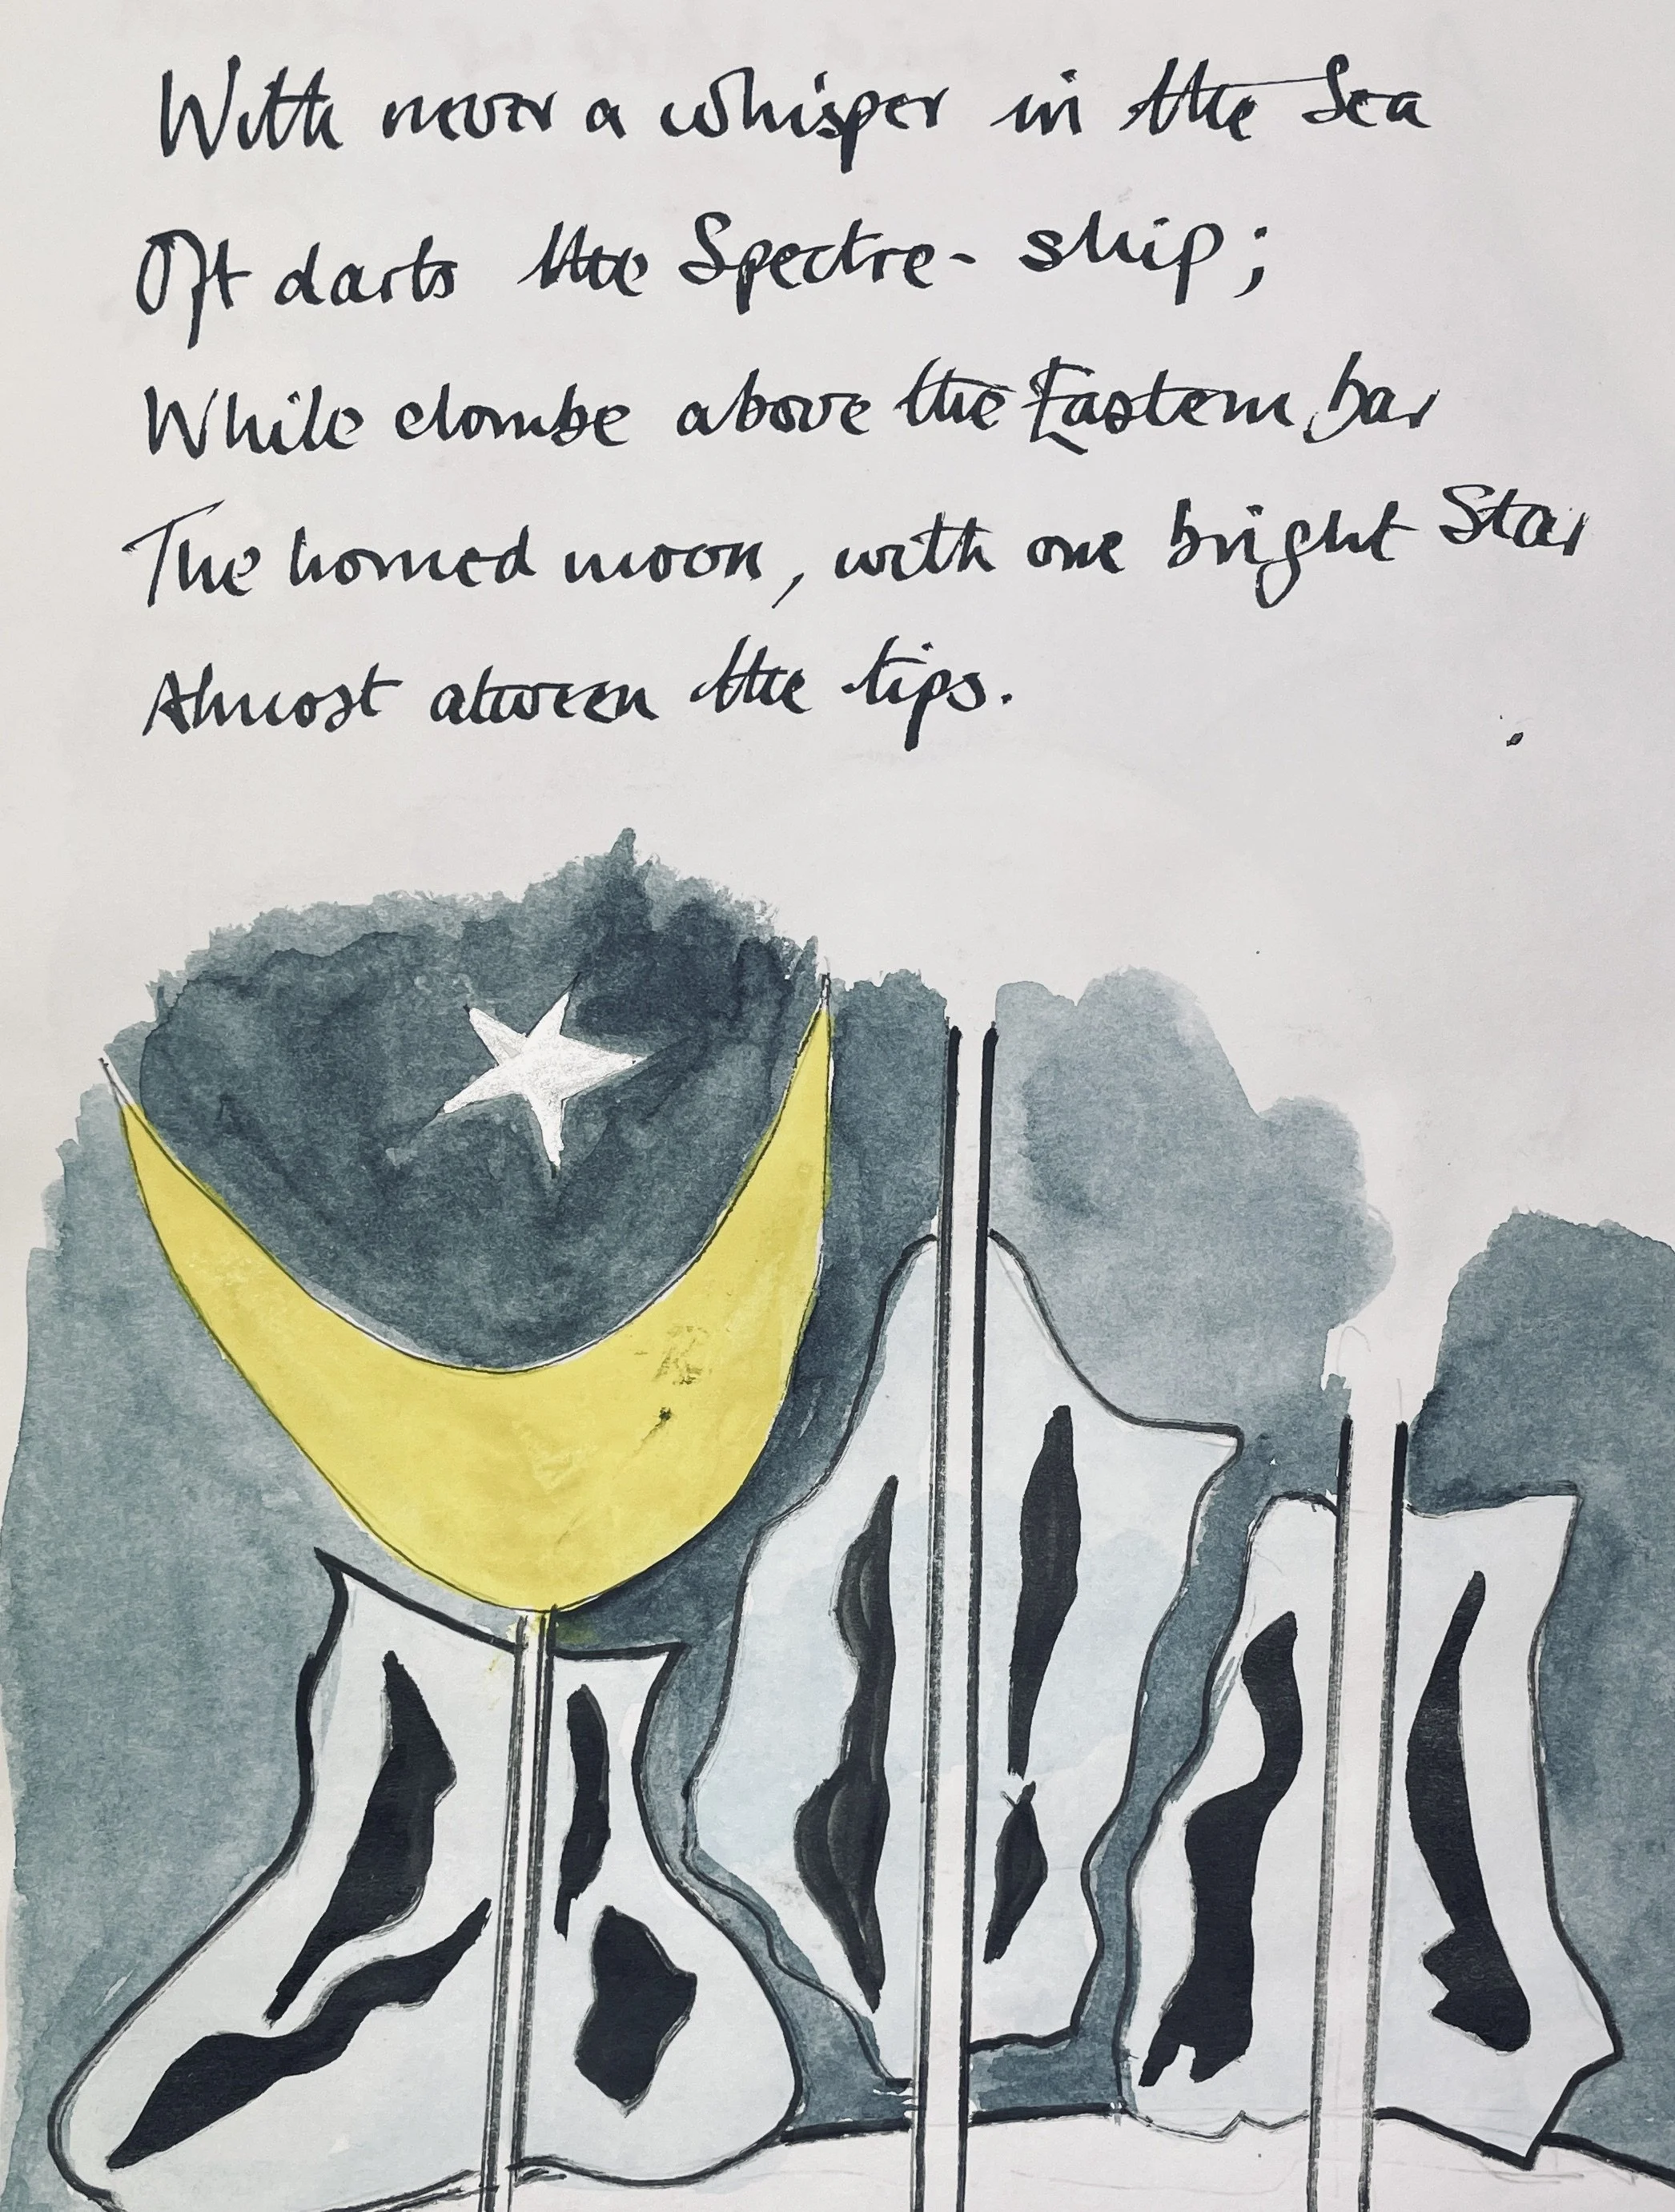 With never a whisper in the Sea
Oft darts the Spectre- ship;
While clombe above the Eastern bar
The horned moon, with one bright Star
Almost atween the tips.